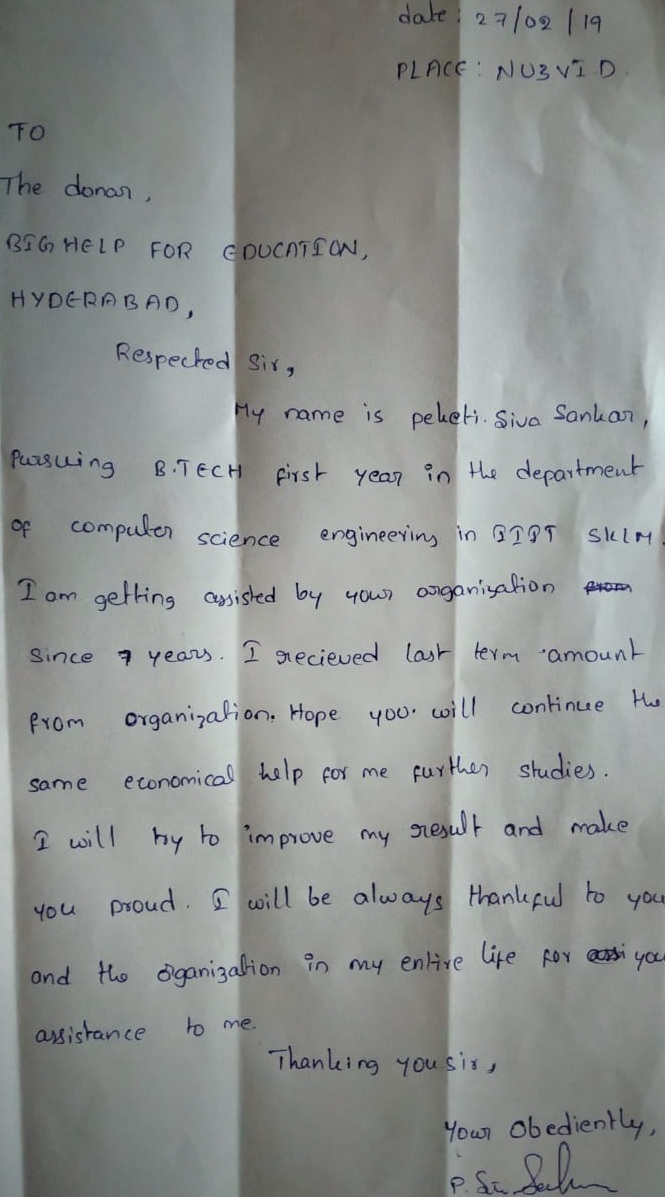 date: 27/02/19
PLACE: NUZVID
TO
The donar,
BIG HELP FOR EDUCATION,
HYDERABAD,
Respected Sir,
My name is peketi. Siva Sankar,
Pursuing B.TECH first year in the department
of computer science engineering in SKLM.
I am getting assisted by your organization from
since 7 years. I recieved last term amount
from organization. Hope you will continue the
same economical help for me further studies.
I will try to improve my result and make
you proud. I will be always thankful to you
and the organization in my entire life for assi you
assistance to me.
Thanking you sir,
Your Obediently,
P.